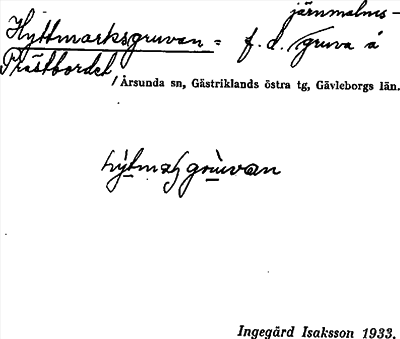 järnmalms-
Hyttmarksgruvan = f.d. gruva å
Prästbordet / Årsunda sn, Gästriklands östra tg, Gävleborgs län.
Ingegärd Isaksson 1933.